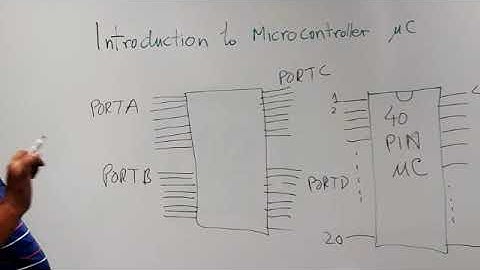 Introduction to Microcontroller μC
PORTC
PORTA
PORTB
PORTD
1
2
20
40
PIN
μC